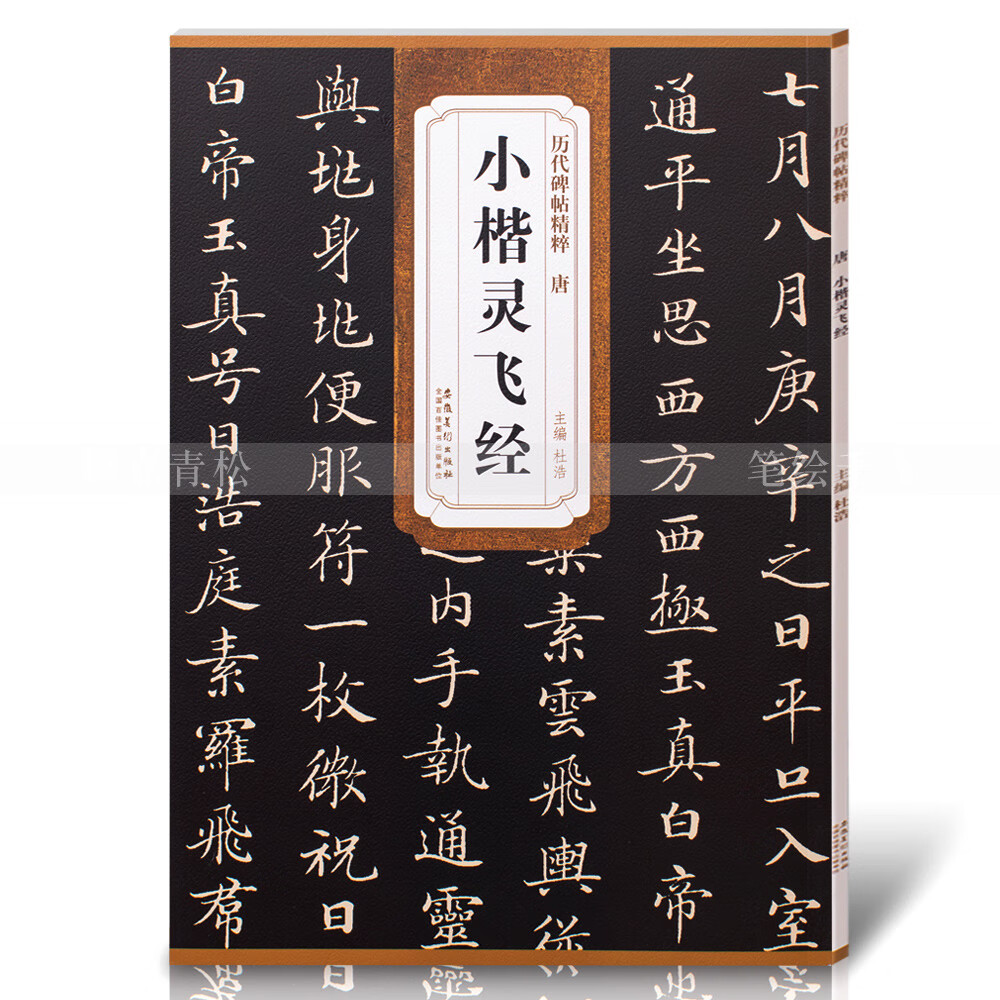 七月八月庚辛之日平旦入室
通平坐思西方西極玉真白帝
素雲飛輿從
之内手執通靈
與𡵨身𡵨便服符一枚微祝曰
白帝玉真号曰浩庭素羅飛帬
历代碑帖精粹 唐
小楷灵飞经
主编 杜浩
安徽美术出版社
全国百佳图书出版单位
历代碑帖精粹 唐 小楷灵飞经 主编 杜浩
青松
笔绘